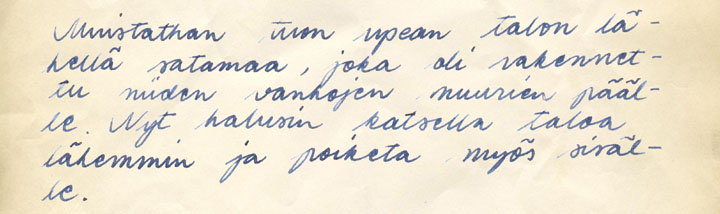 Muistathan tuon upean talon lä-
hellä satamaa, joka oli rakennet-
tu niiden vanhojen muurien pääl-
le. Nyt halusin katsella taloa
lähemmin ja poiketa myös sisäl-
le.